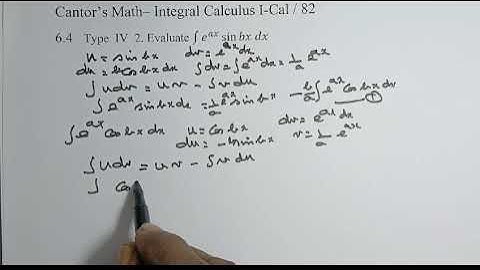 Cantor's Math– Integral Calculus I-Cal / 82
6.4 Type IV 2. Evaluate ∫ e^{ax} sin bx dx
u = sin bx dv = e^{ax} dx
du = b cos bx dx ∫dv = ∫e^{ax} dx = 1/a e^{ax}
∫u dv = uv − ∫v du
∫e^{ax} sin bx dx = 1/a e^{ax} sin bx − b/a ∫e^{ax} cos bx dx —①
∫e^{ax} cos bx dx u = cos bx dv = e^{ax} dx
du = −b sin bx v = 1/a e^{ax}
∫u dv = uv − ∫v du
∫ co